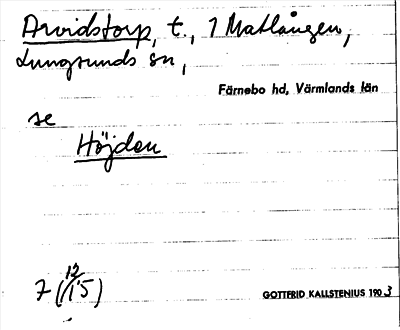 Arvidstorp, t., 1 Matlången,
Lungsunds sn,
Färnebo hd, Värmlands län
se
Höjden
12
7 (1/5)
GOTTFRID KALLSTENIUS 1903